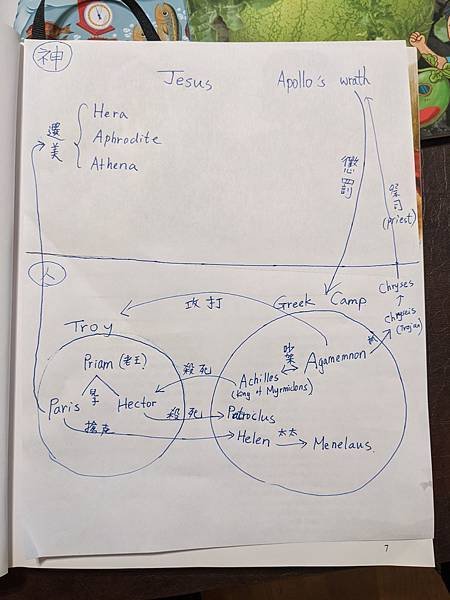 神
Jesus
Apollo's wrath
選美
Hera
Aphrodite
Athena
懲罰
祭司
(priest)
人
攻打
Greek Camp
Chryses
Chryseis
(Trojan)
Troy
Priam (老王)
Paris
Hector
搶走
殺死
殺死
吵架
Agamemnon
Achilles
(king of Myrmidons)
Patroclus
Helen
太太
Menelaus.
7